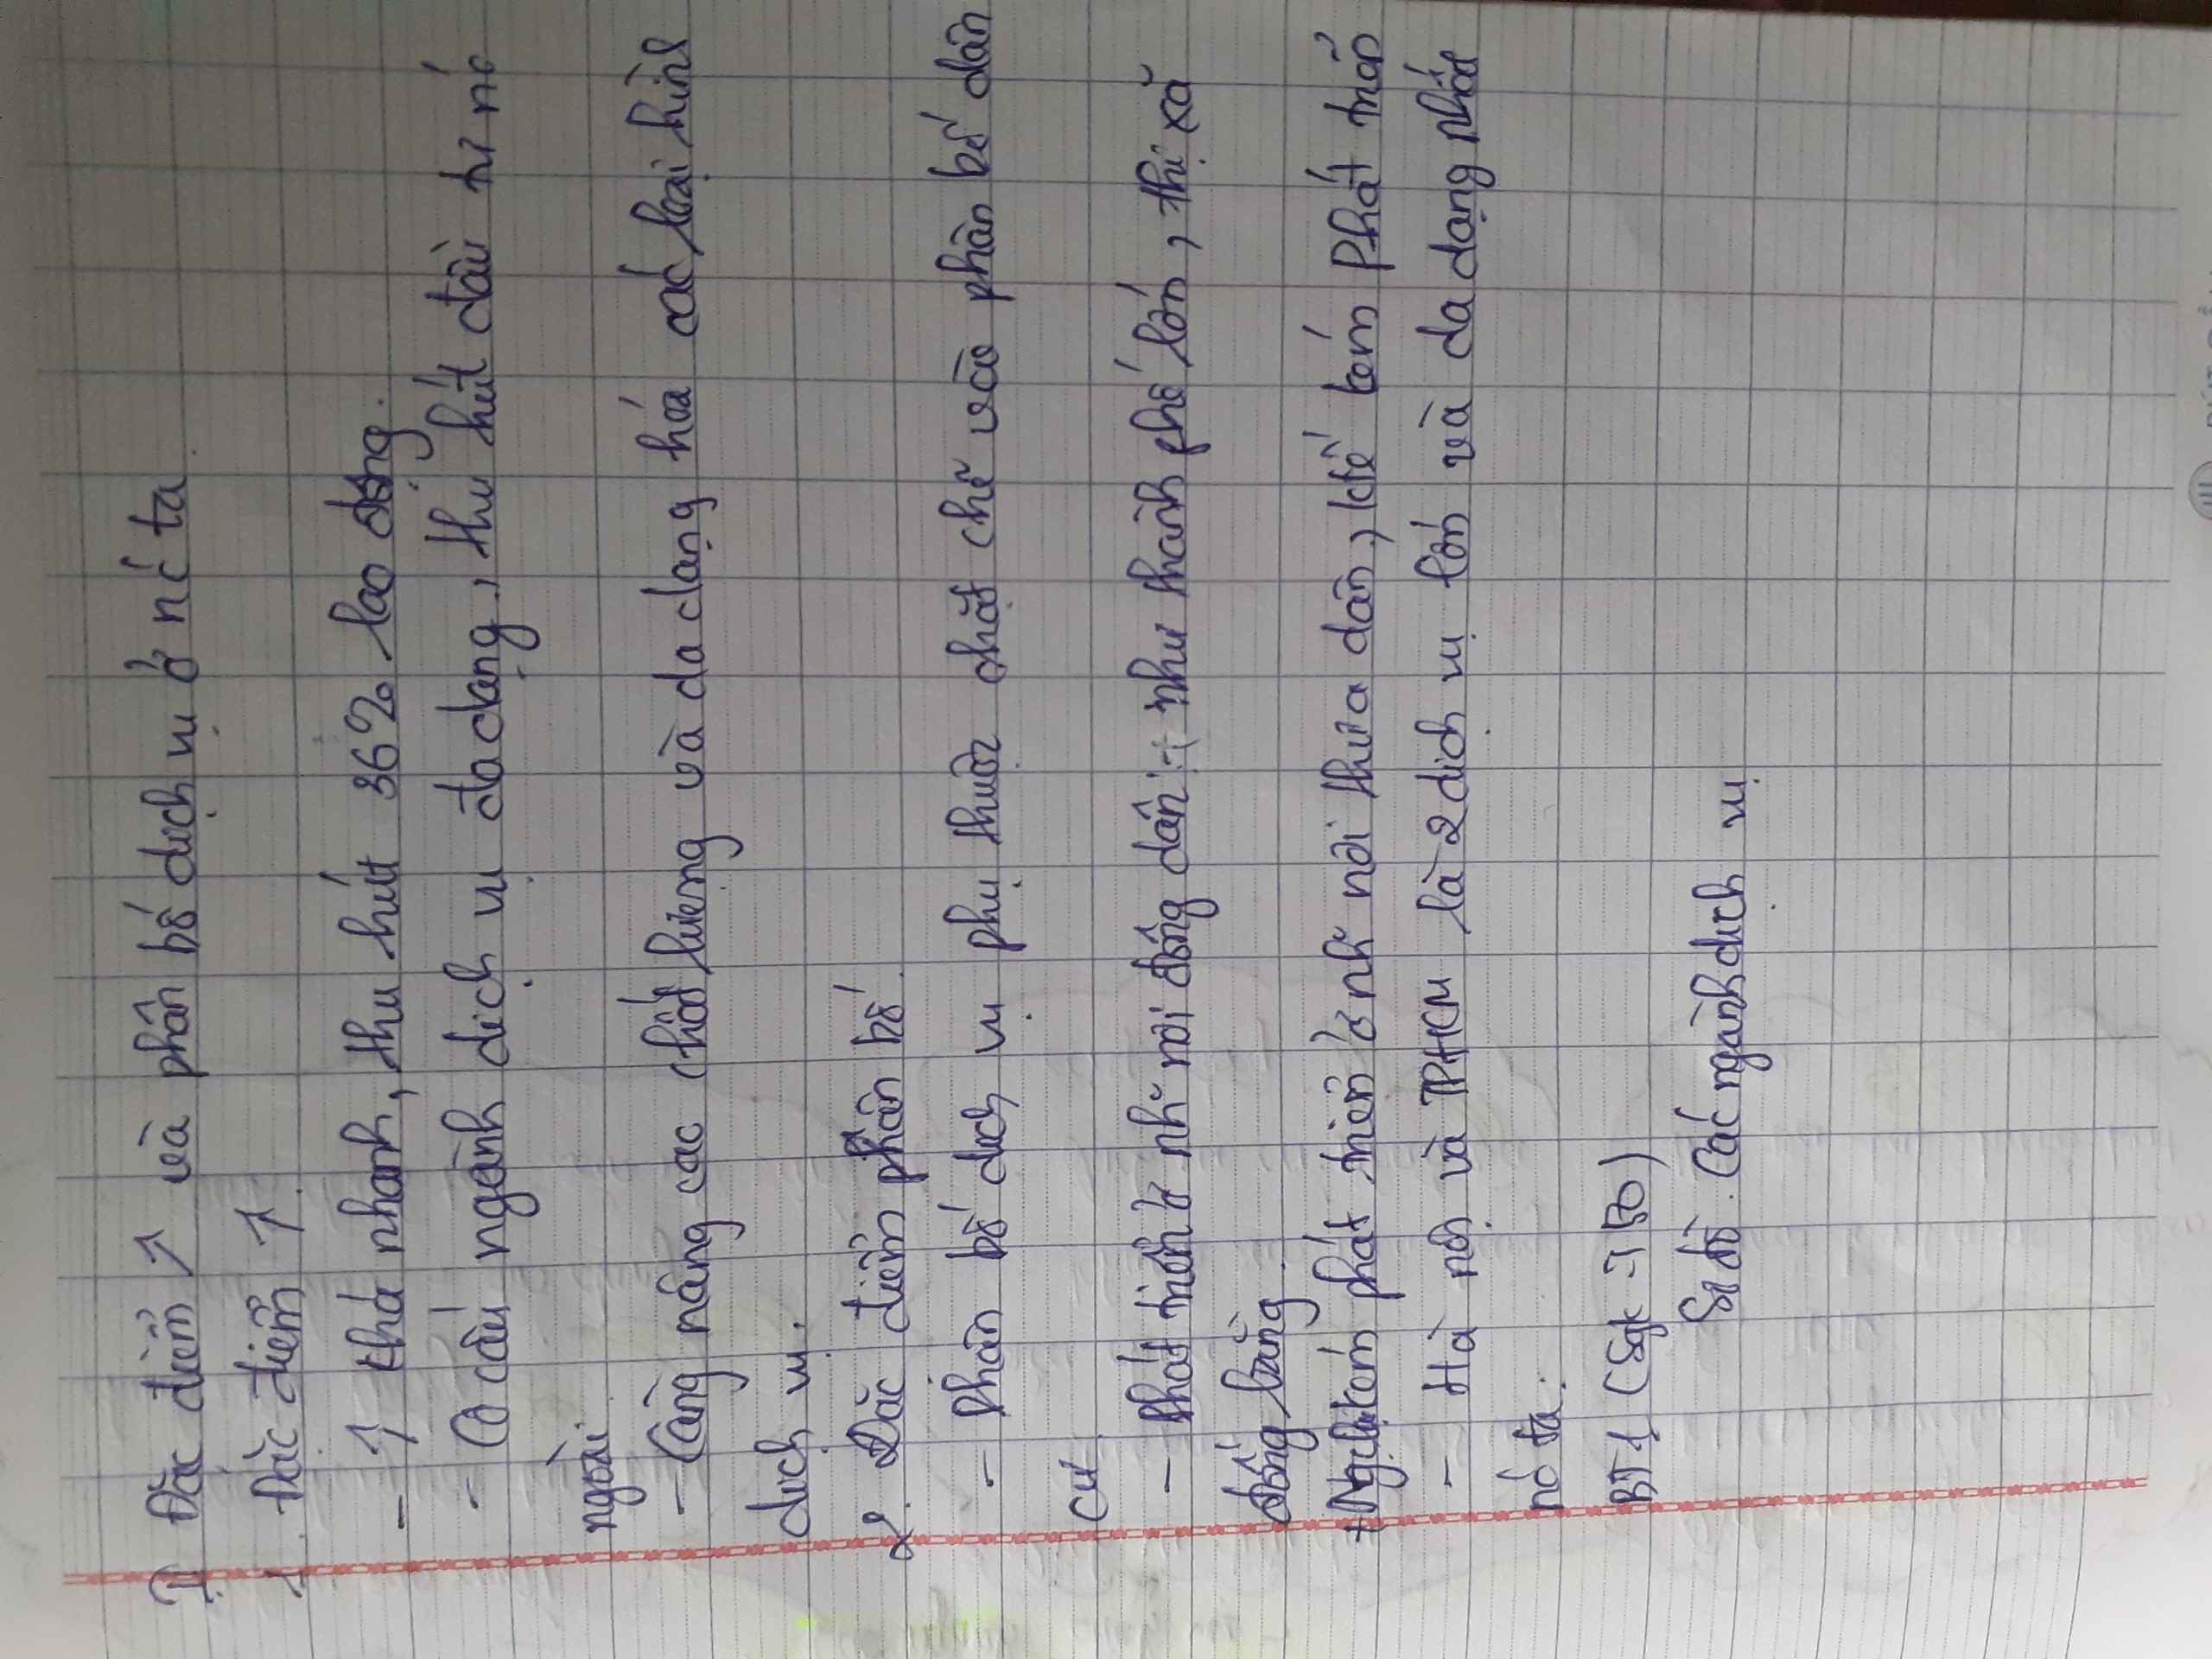 II Đặc điểm ↗ và phân bố dịch vụ ở nc ta
1. Đặc điểm ↗
- ↗ khá nhanh, thu hút 36% lao động.
- Cơ cấu ngành dịch vụ đa dạng, thu hút đầu tư nc
ngoài.
- Càng nâng cac chất lượng và đa dạng hóa các loại hình
dịch vụ.
2. Đặc điểm phân bố
- phân bố dịch vụ phụ thuộc chặt chẽ vào phân bố dân
cư
- phát triển ở nh~ nơi đông dân: như thành phố lớn, thị xã
đồng bằng.
phát triển ở nh~ nơi thưa dân, ktế kém phát triển
- Hà nội và TPHCM là 2 dịch vụ lớn và đa dạng nhất
nc ta.
BT1 (Sgk 50)
Sơ đồ. Các ngành dịch vụ